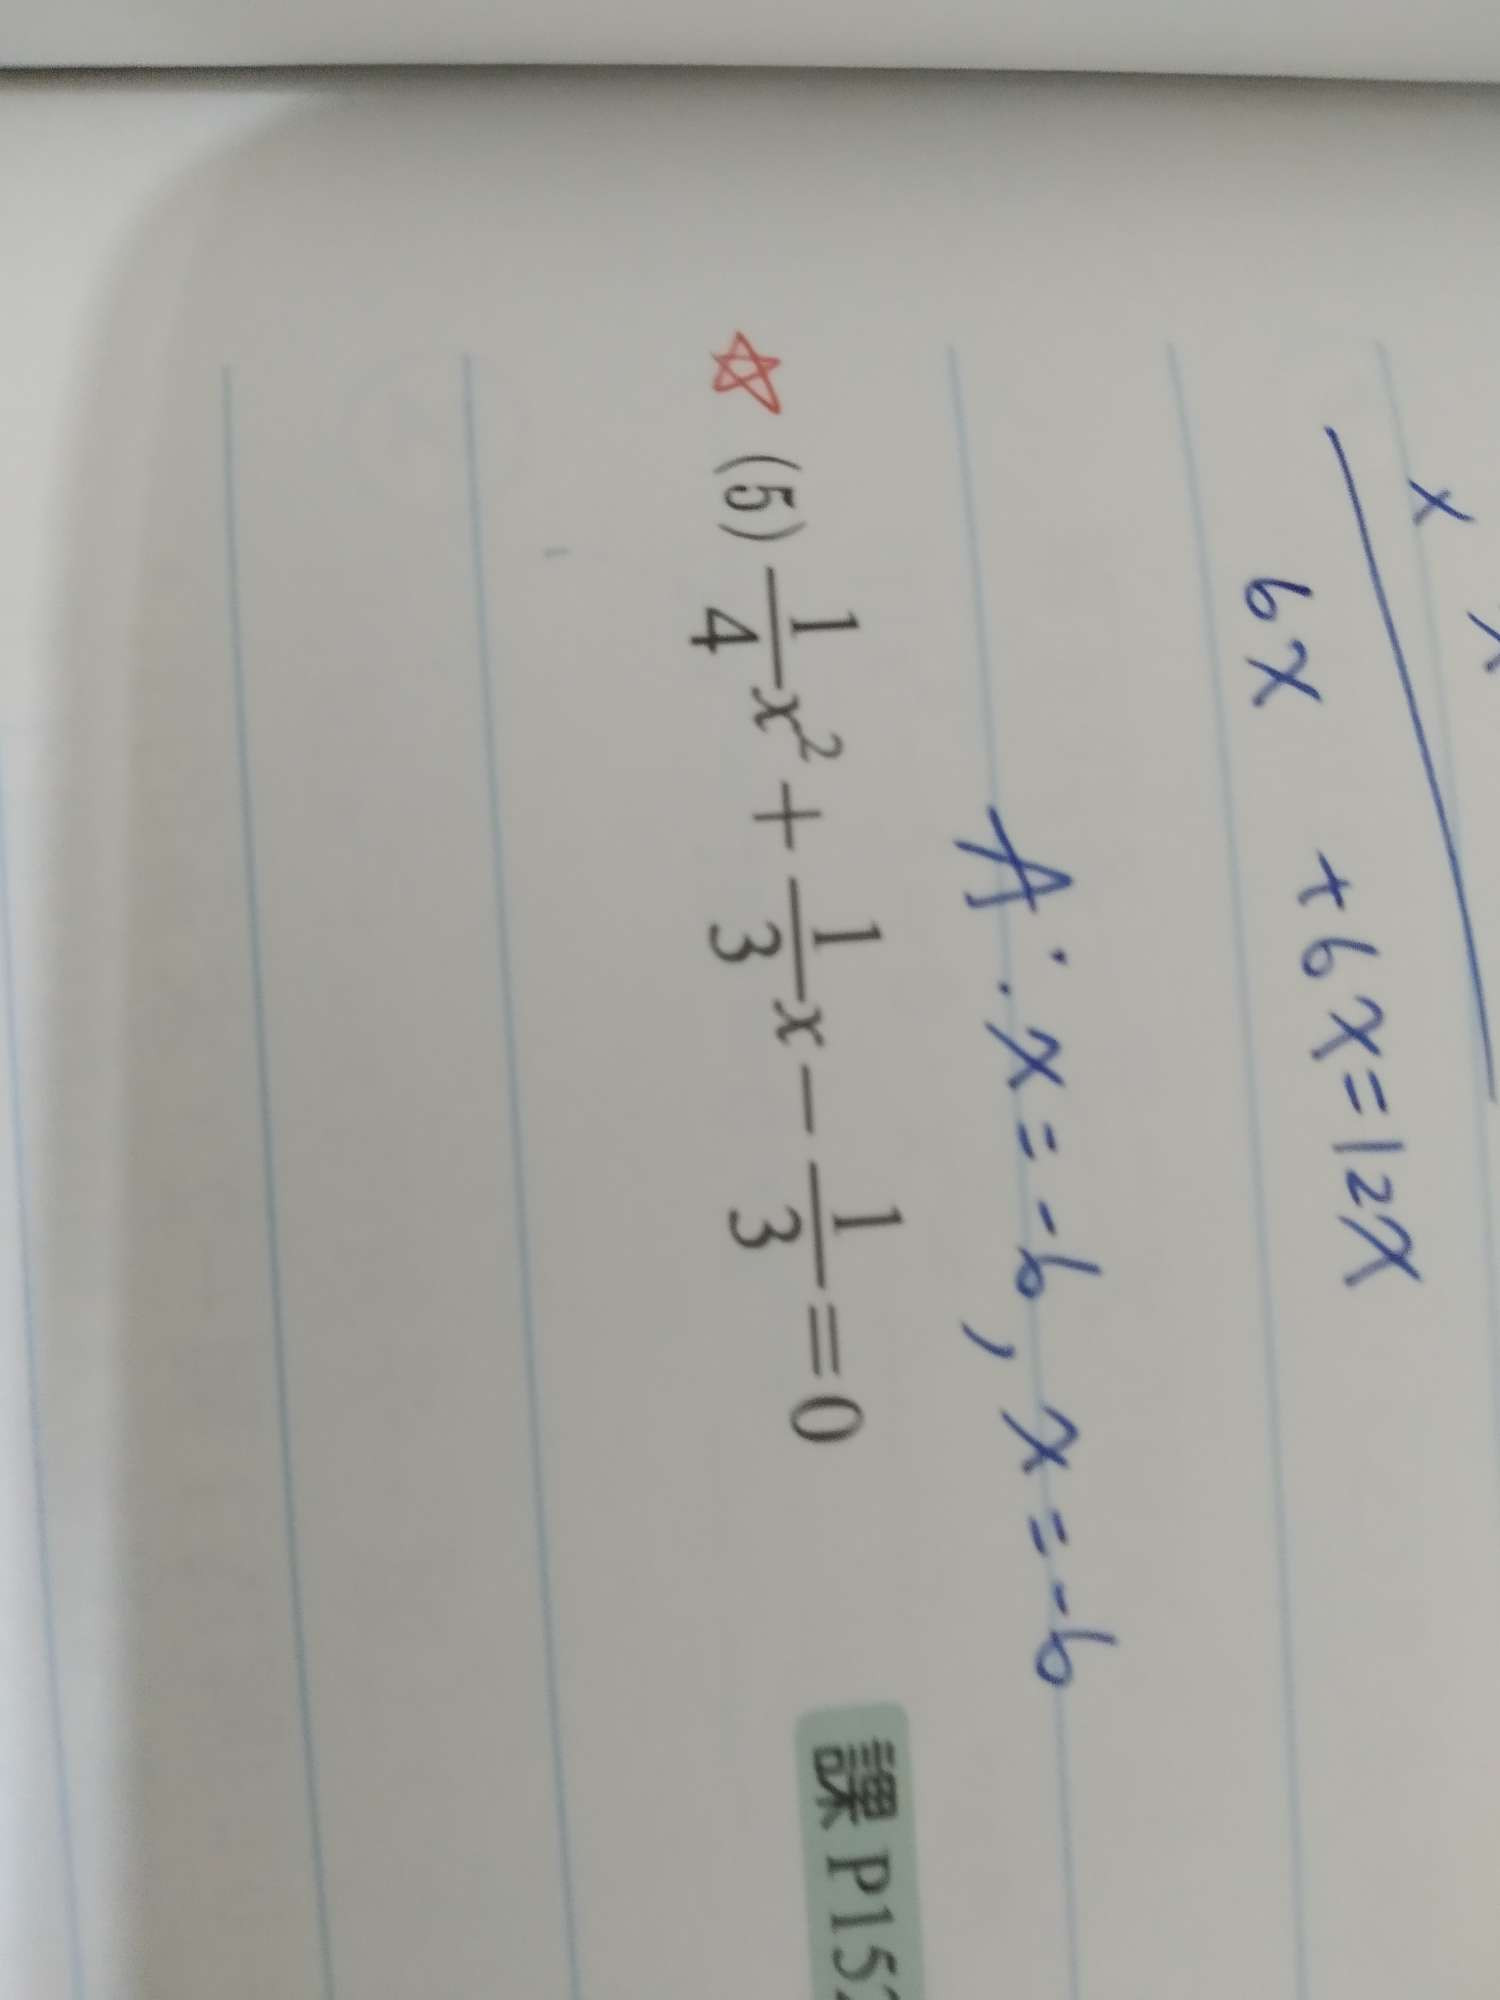 x x
6x +6x=12x
A: x=-6, x=-6
(5) \frac{1}{4}x² + \frac{1}{3}x - \frac{1}{3} = 0 課 P152